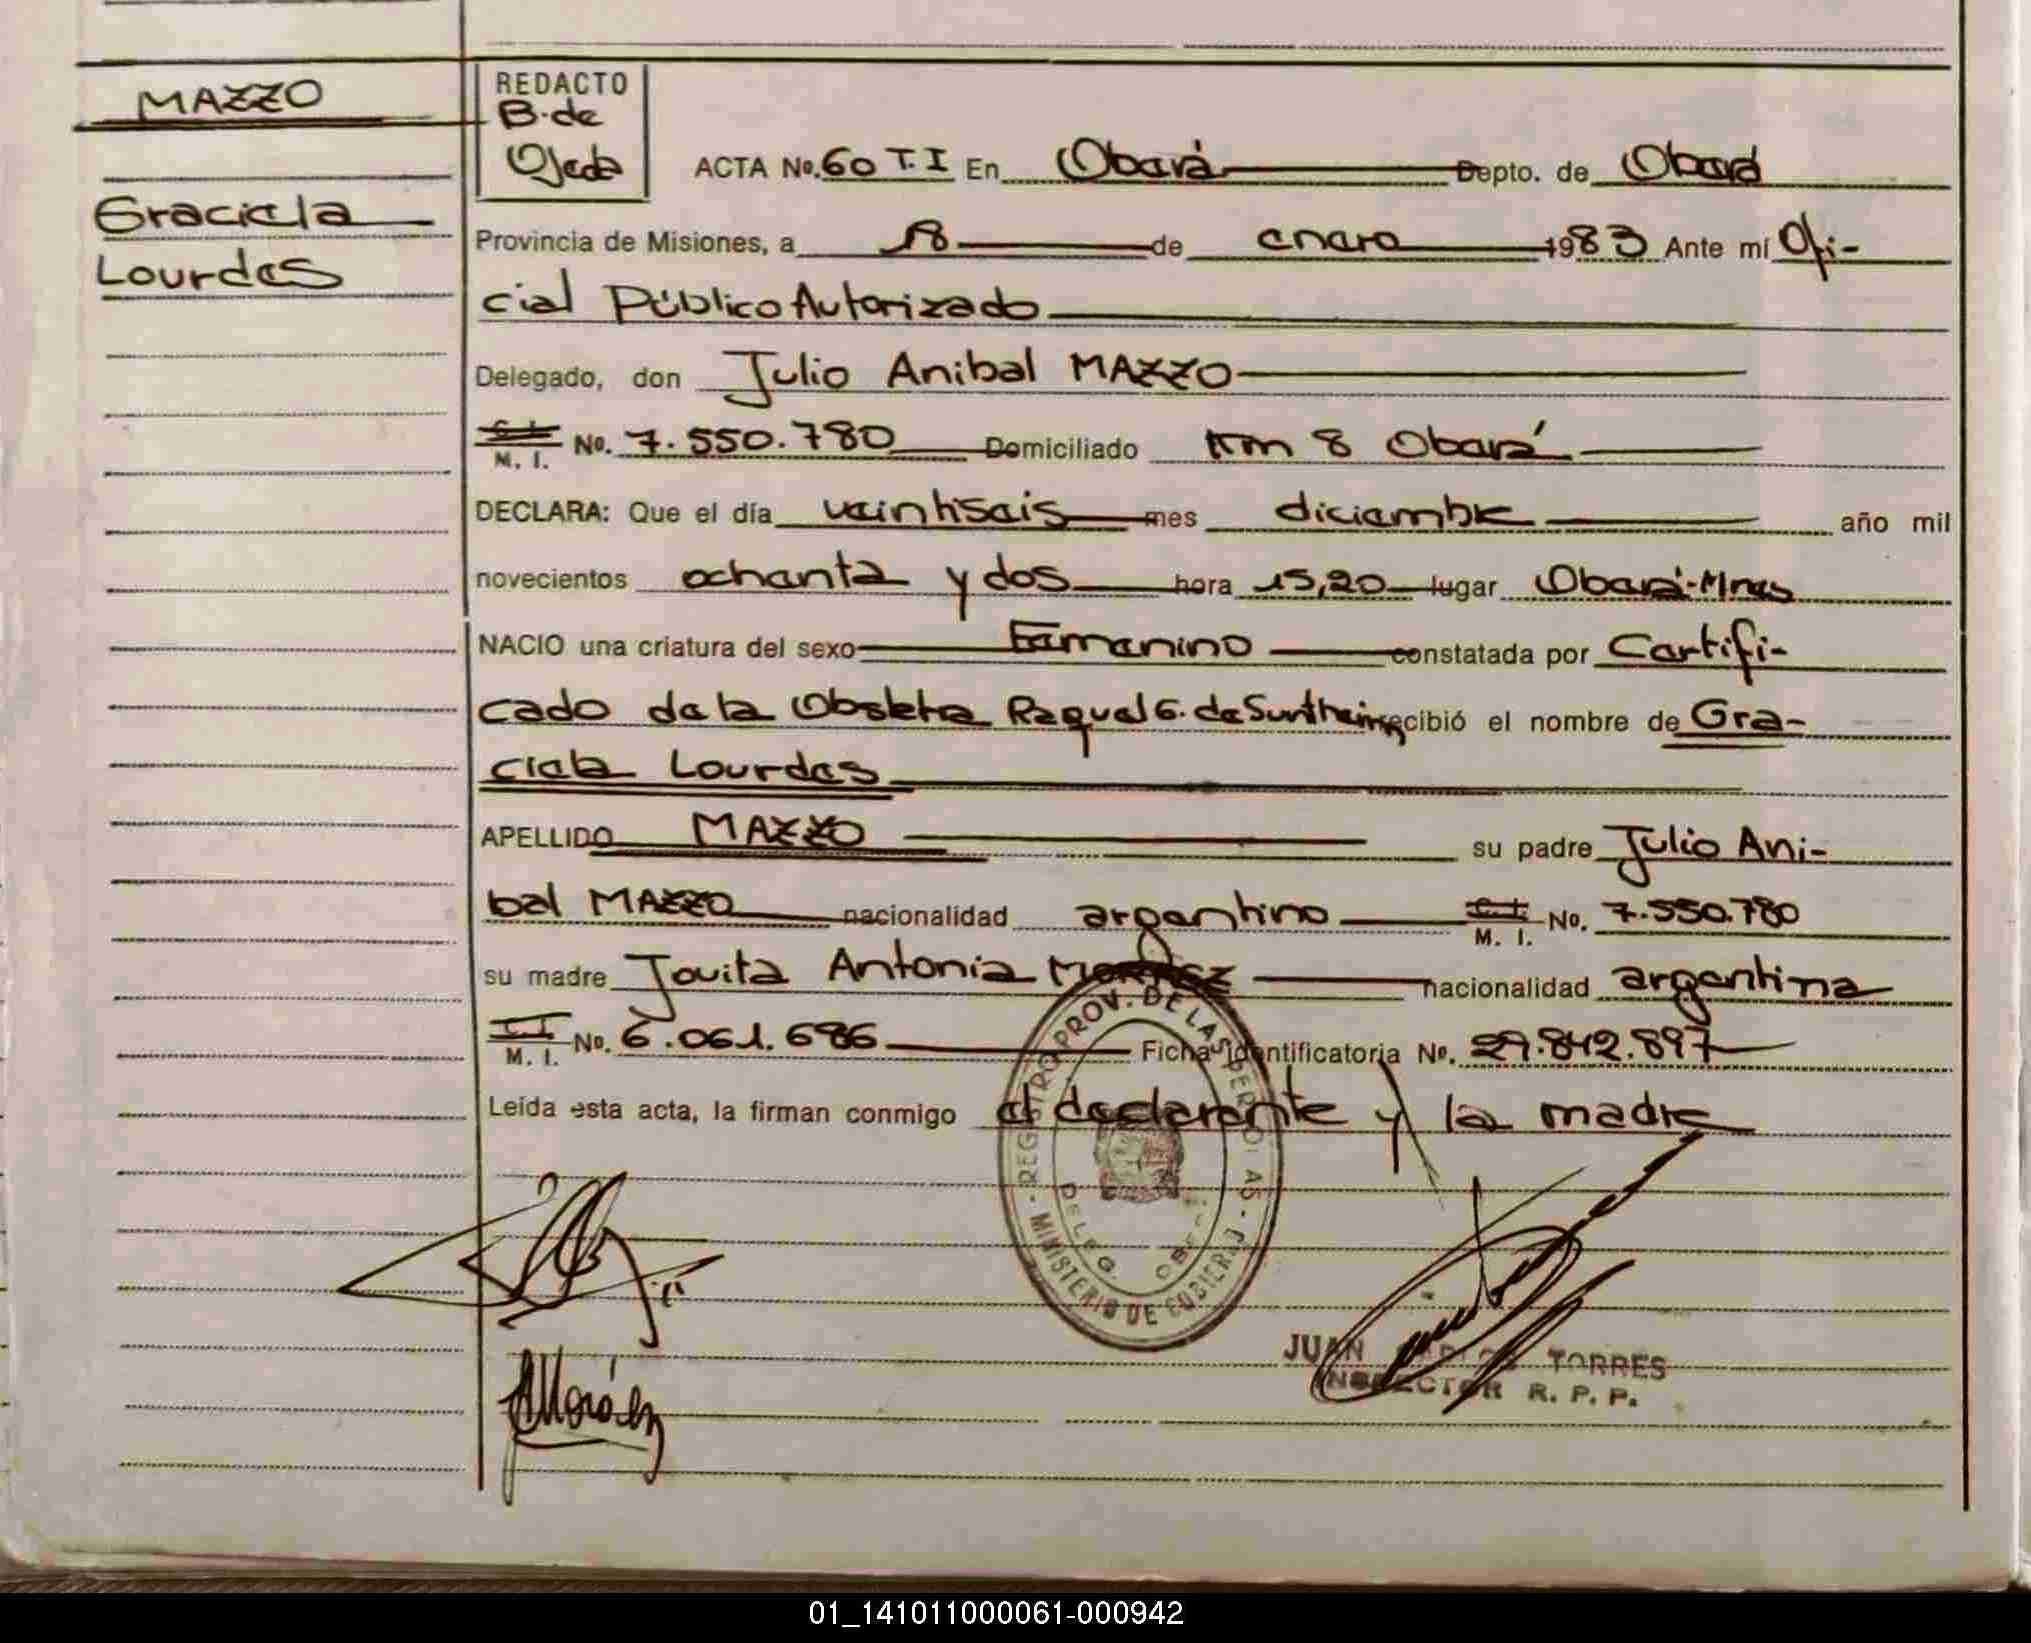 MAZZO
Graciela
Lourdes
REDACTO
B. de
Ojeda
ACTA No. 60 T. I En Oberá Depto. de Oberá
Provincia de Misiones, a 18 de enero 1983 Ante mí Ofi-
cial Público Autorizado
Delegado, don Julio Anibal MAZZO
C. I.
M. I. No. 7.550.780 Domiciliado Km 8 Oberá
DECLARA: Que el día veintiseis mes diciembre año mil
novecientos ochenta y dos hora 15,20 lugar Oberá-Mnes
NACIO una criatura del sexo Femenino constatada por Certifi-
cado de la Obstetra Raquel G. de Suntheim recibió el nombre de Gra-
ciela Lourdes
APELLIDO MAZZO su padre Julio Ani-
bal MAZZO nacionalidad argentino C. I.
M. I. No. 7.550.780
su madre Jovita Antonia nacionalidad argentina
C. I.
M. I. No. 6.061.686 Ficha Identificatoria No. 29.842.897
Leída esta acta, la firman conmigo el declarante y la madre
REGISTRO PROV. DE LAS PERSONAS - MINISTERIO DE GOBIERNO
DELEG. OBERA
JUAN CARLOS TORRES
INSPECTOR R. P. P.
01_141011000061-000942